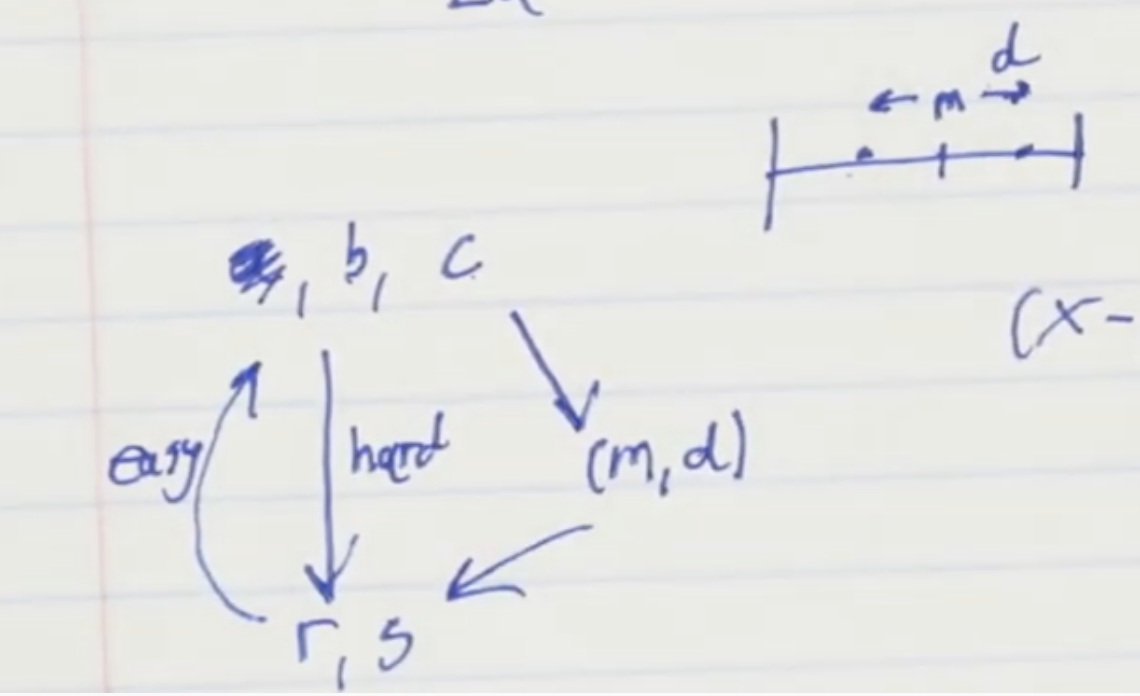 d
← m →
, b, c
(x-
easy
hard
(m, d)
r, s